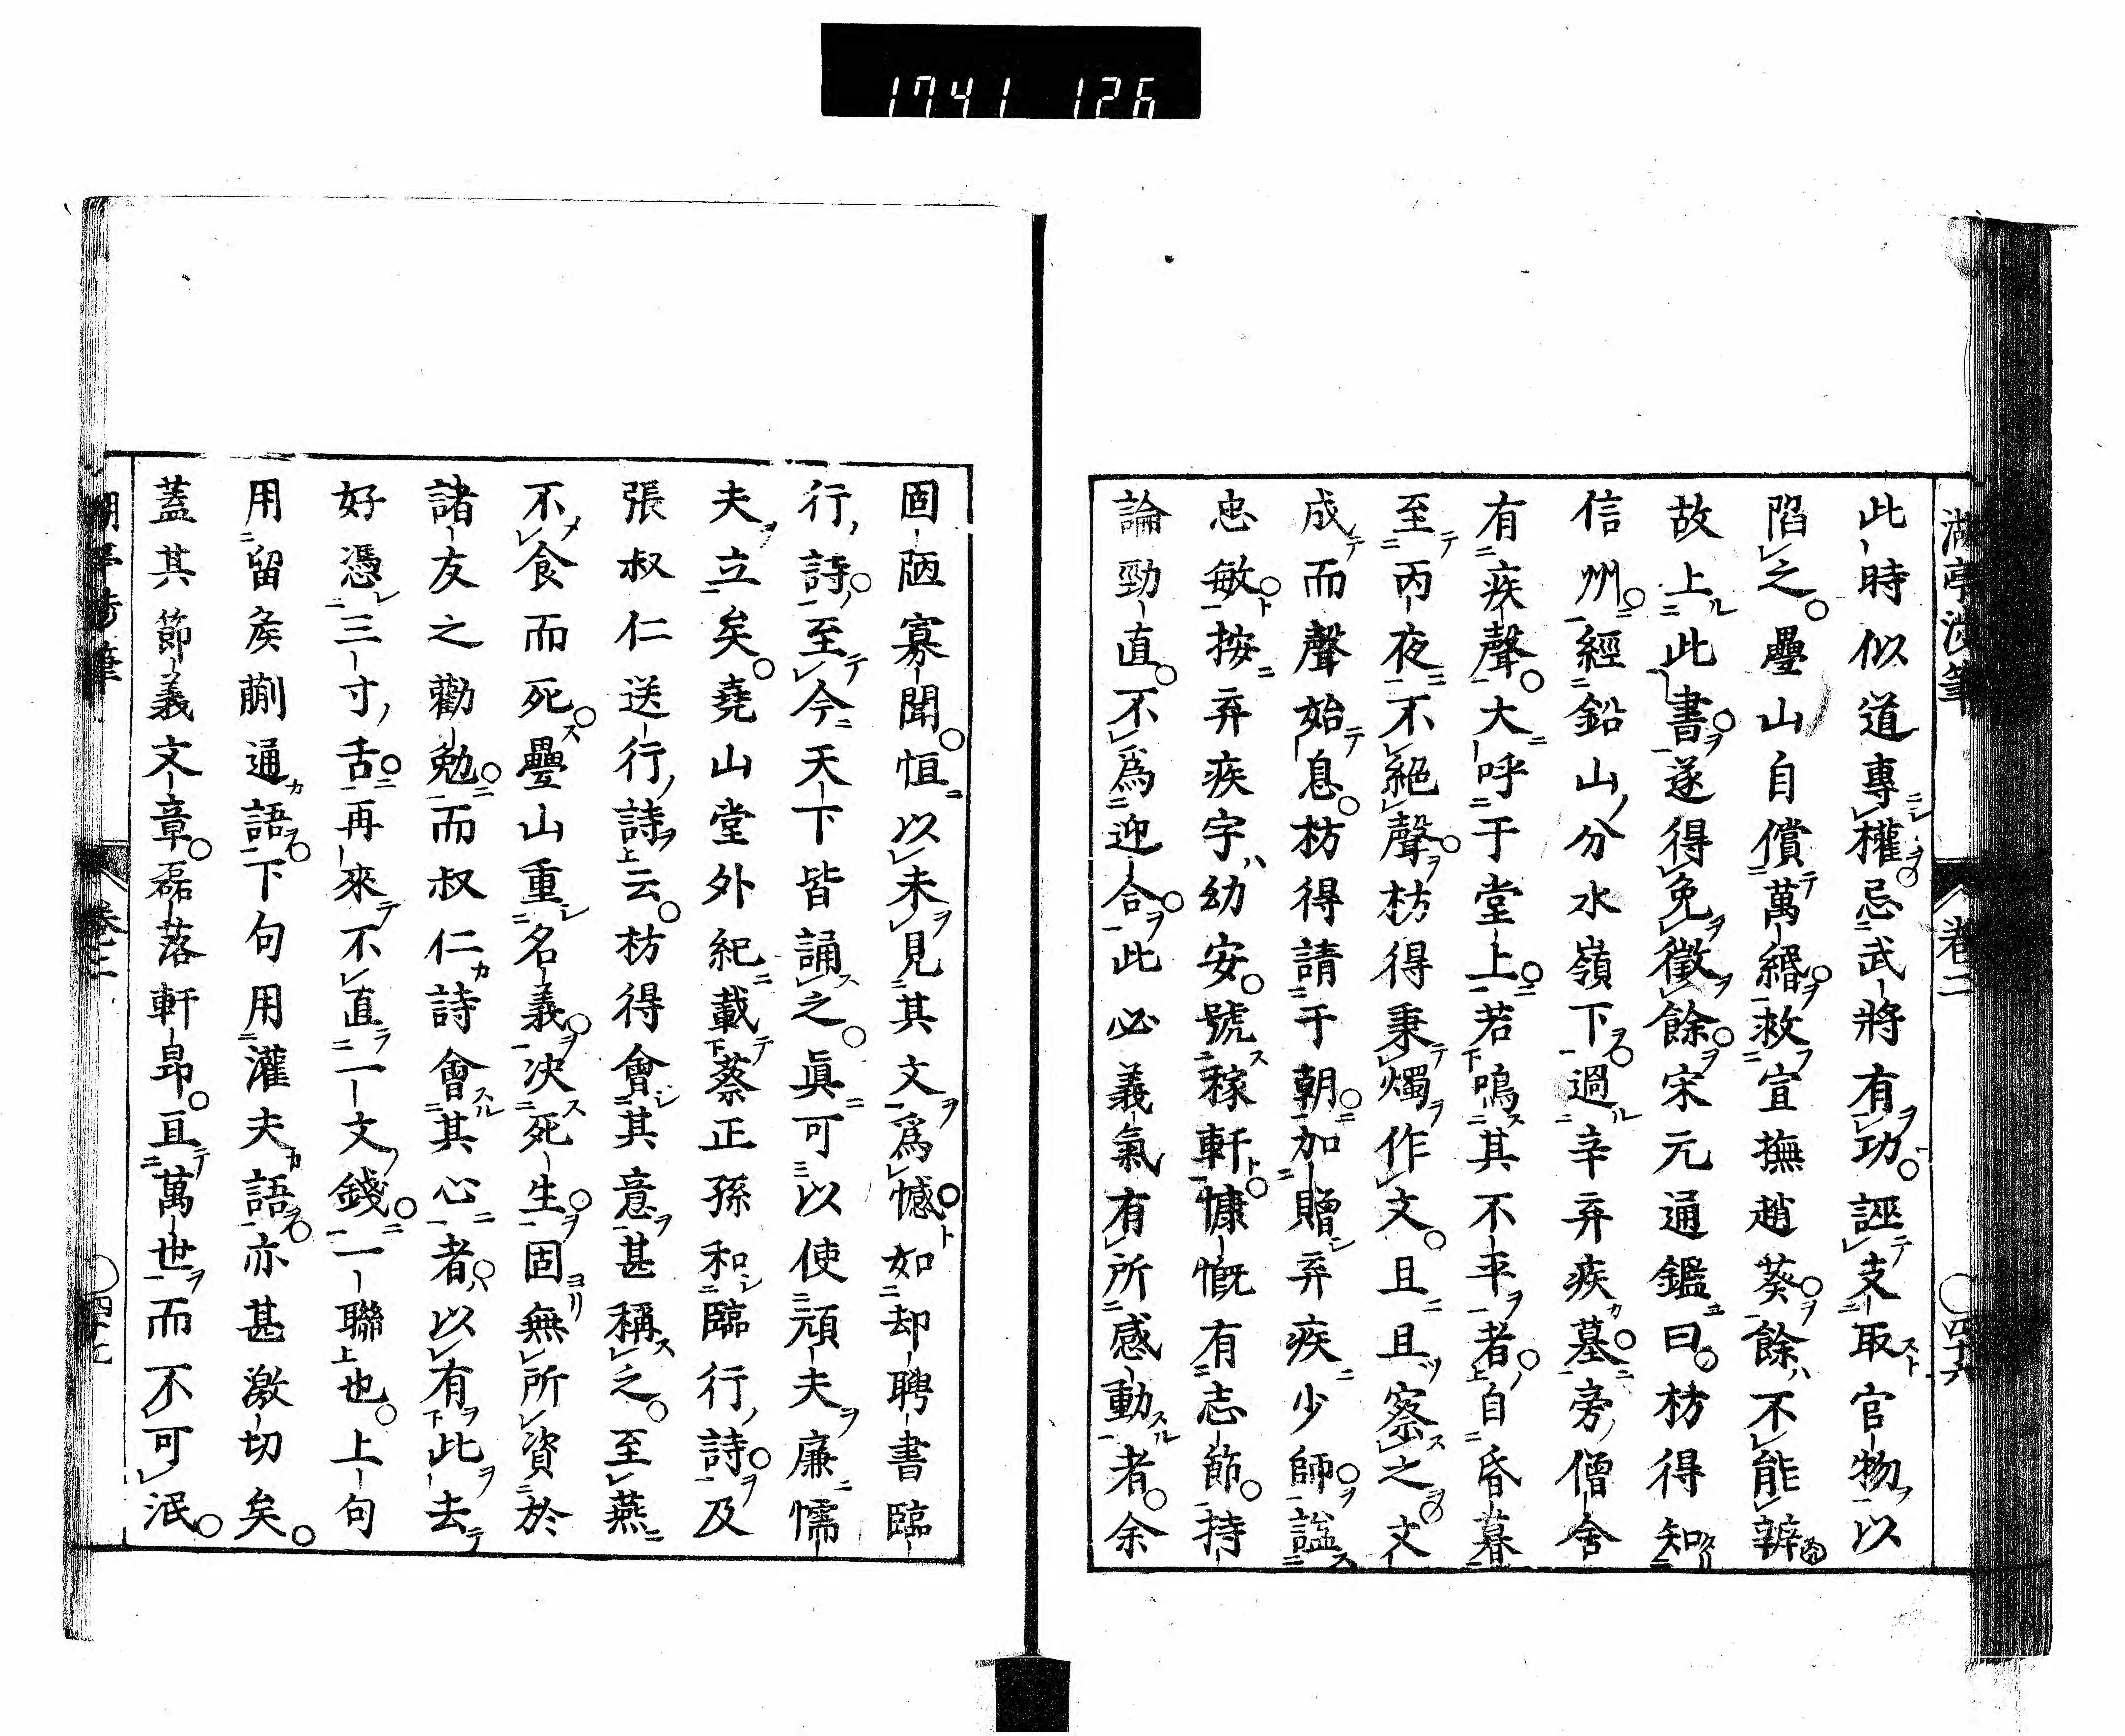 1741 126
此時似道專權忌武將有功誣支取官物以
陷之疊山自償萬緡救宣撫趙葵餘不能辧
故上此書遂得免徵餘宋元通鑑曰枋得知
信州經鉛山分水嶺下過辛弃疾墓旁僧舍
有疾聲大呼于堂上若鳴其不平者自昏暮
至丙夜不絕聲枋得秉燭作文且且察之文
成而聲始息枋得請于朝加贈弃疾少師諡
忠敏按弃疾字幼安號稼軒慷慨有志節持
論勁直不爲迎合此必義氣有所感動者余
固陋寡聞恒以未見其文爲憾如却聘書臨
行詩至今天下皆誦之眞可以使頑夫廉懦
夫立矣堯山堂外紀載蔡正孫和臨行詩及
張叔仁送行詩云枋得會其意甚稱之至燕
不食而死疊山重名義决死生固無所資於
諸友之勸勉而叔仁詩會其心者以有此去
好憑三寸舌再來不直一文錢一聯也上句
用留矦蒯通語下句用灌夫語亦甚激切矣
蓋其節義文章磊落軒昂亘萬世而不可泯
卷二
四十六